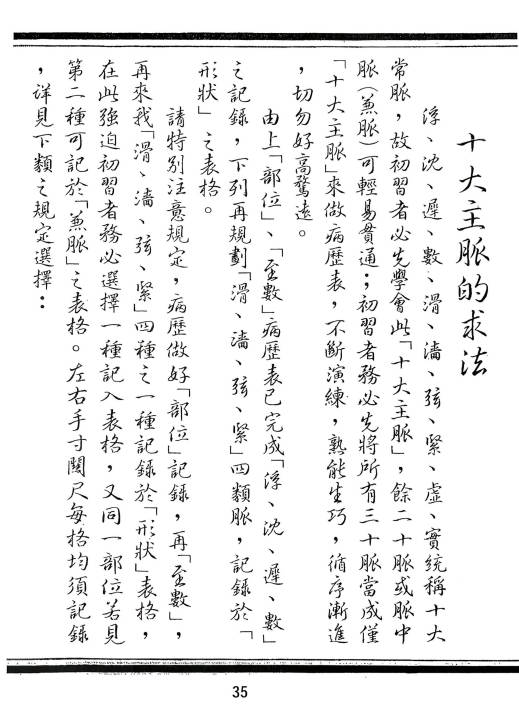 十大主脈的求法
浮、沈、遲、數、滑、濇、弦、緊、虛、實統稱十大
常脈，故初習者必先學會此「十大主脈」，餘二十脈或脈中
脈（兼脈）可輕易貫通；初習者務必先將所有三十脈當成僅
「十大主脈」來做病歷表，不斷演練，熟能生巧，循序漸進
，切勿好高騖遠。
由上「部位」、「至數」病歷表已完成「浮、沈、遲、數」
之記錄，下列再規劃「滑、濇、弦、緊」四類脈，記錄於「
形狀」之表格。
請特別注意規定，病歷做好「部位」記錄，再「至數」，
再來找「滑、濇、弦、緊」四種之一種記錄於「形狀」表格，
在此強迫初習者務必選擇一種記入表格，又同一部位若見
第二種可記於「兼脈」之表格。左右手寸關尺每格均須記錄
，详見下類之規定選擇：
35